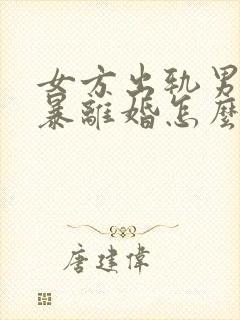 女方出轨男
暴離婚怎麼
唐建偉